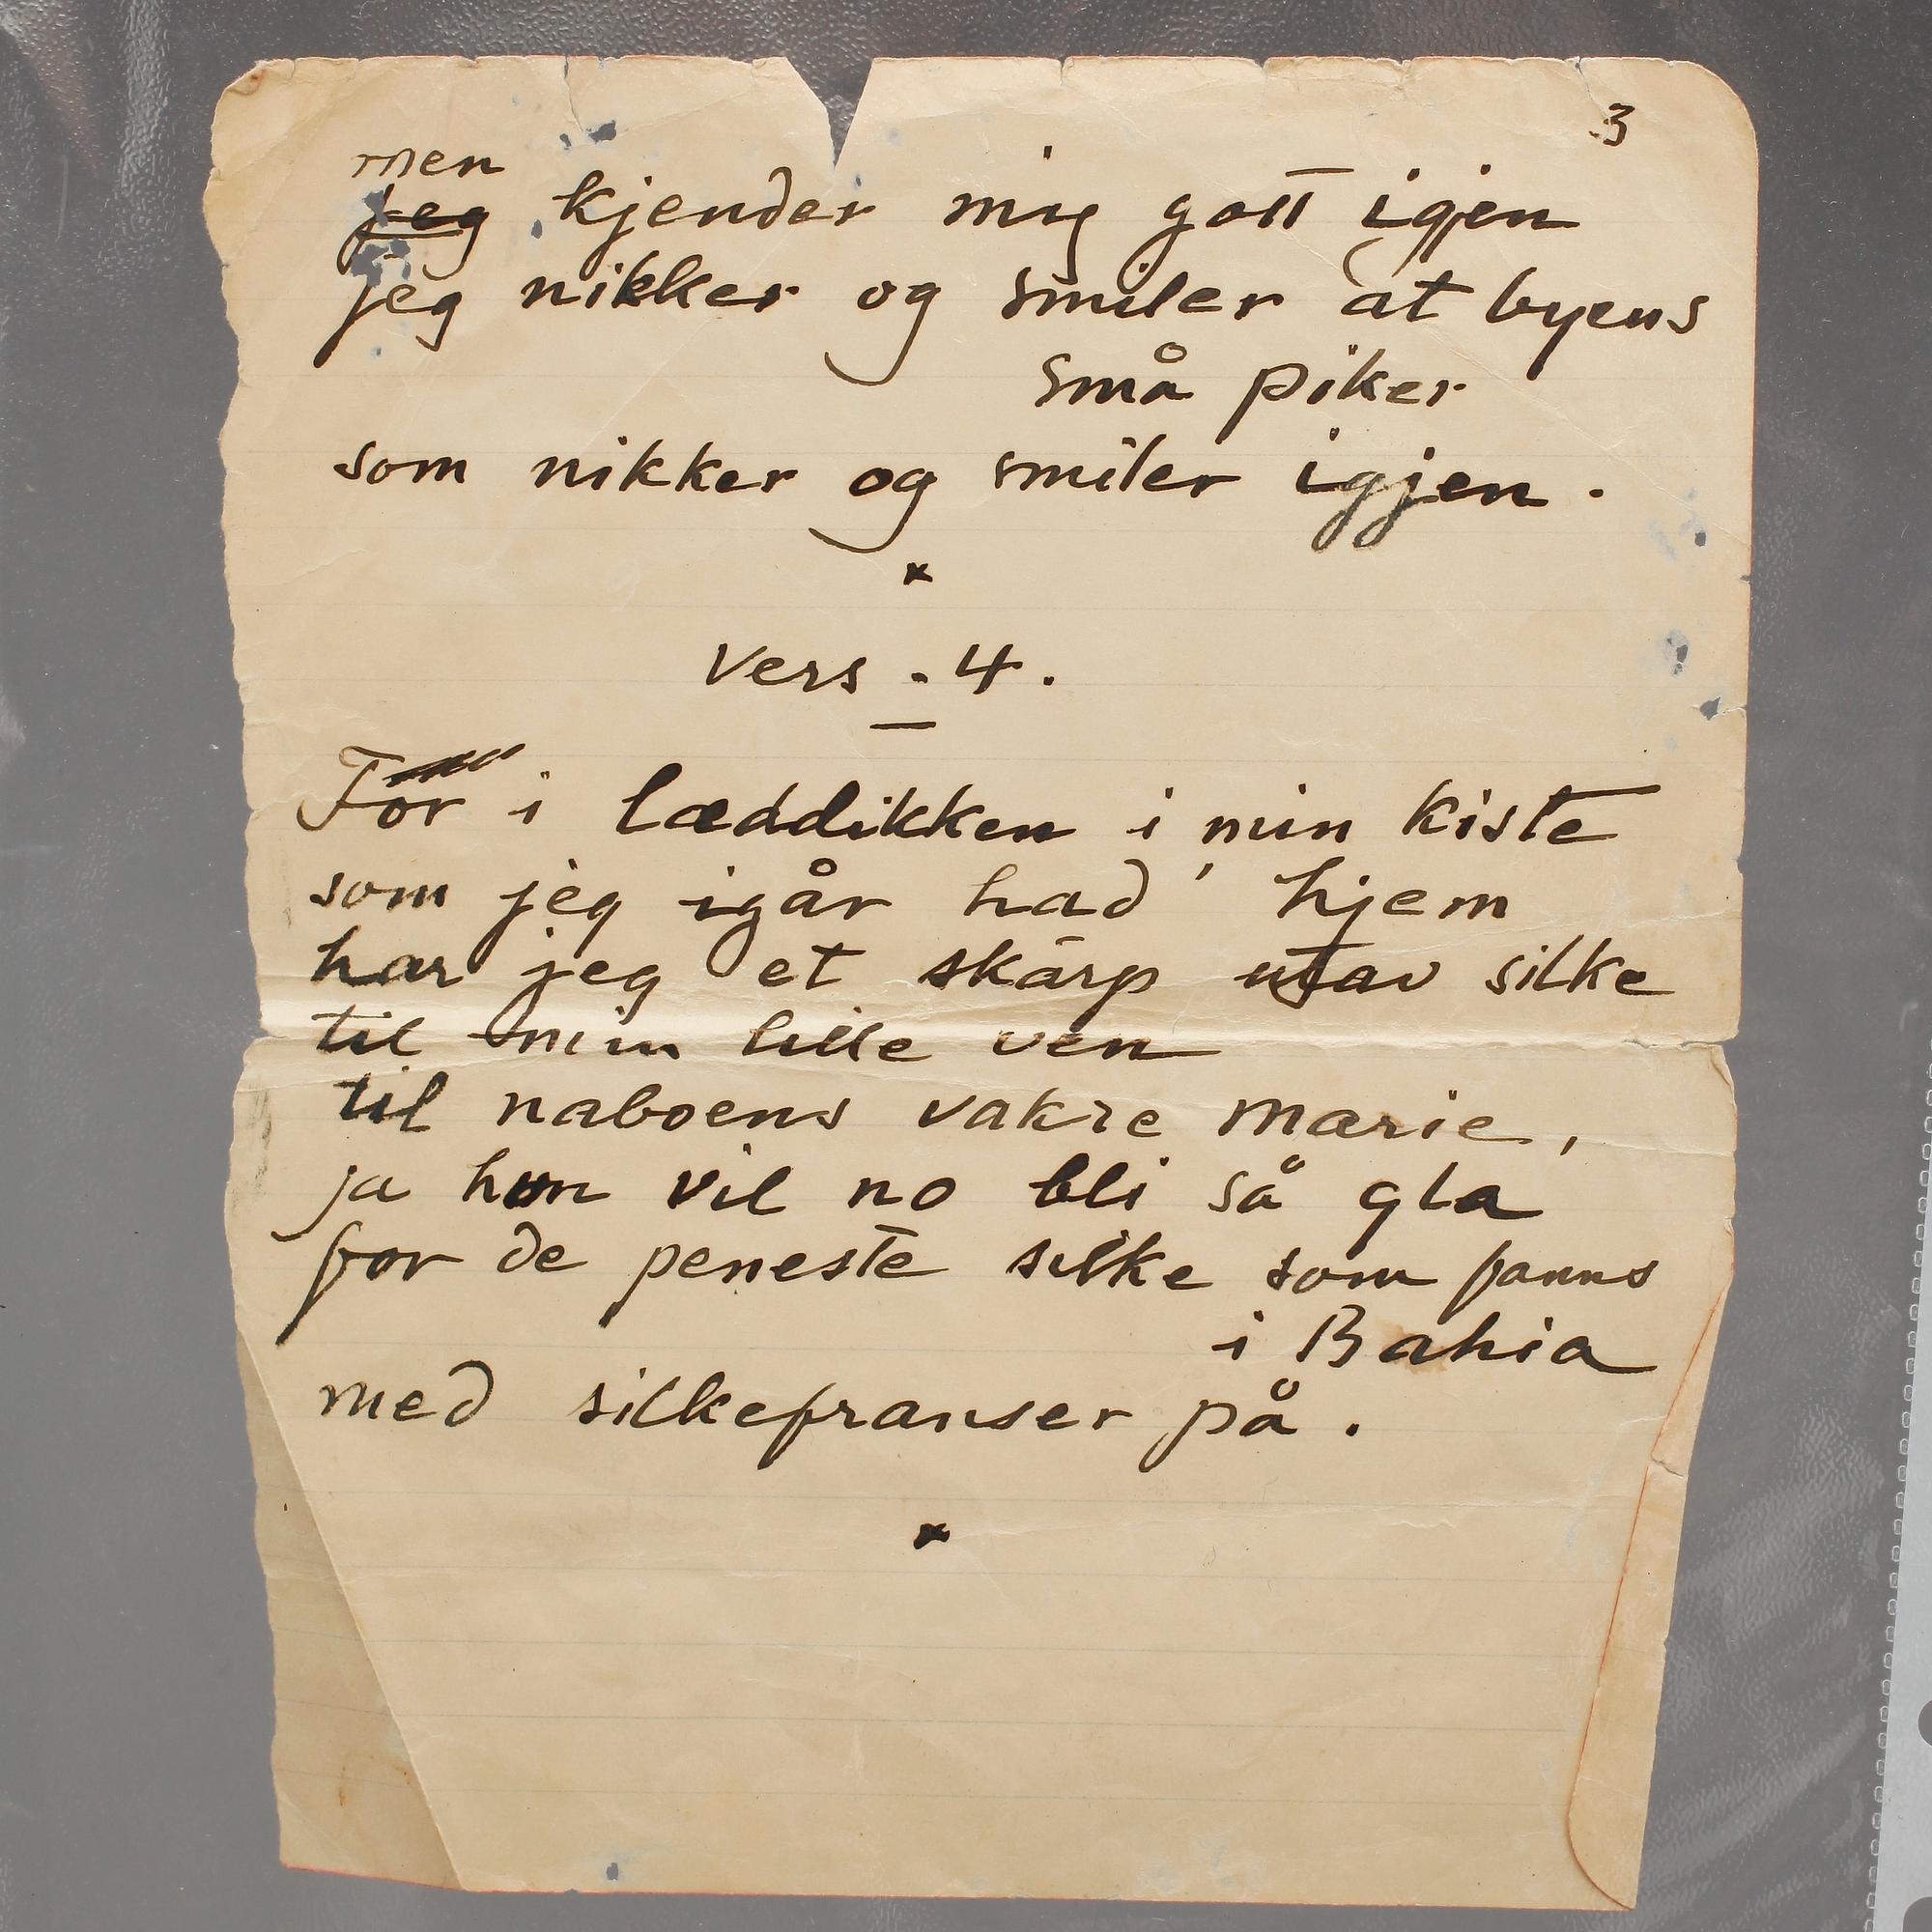 3
men
jeg kjender mig gott igjen
jeg nikker og smiler at byens
små piker
som nikker og smiler igjen.
×
Vers. 4.
For i læddikken i min kiste
som jeg igår had' hjem
har jeg et skärp utav silke
til min lille ven
til naboens vakre Marie,
ja hun vil no bli så gla
for de peneste silke som fanns
i Bahia
med silkefranser på.
×